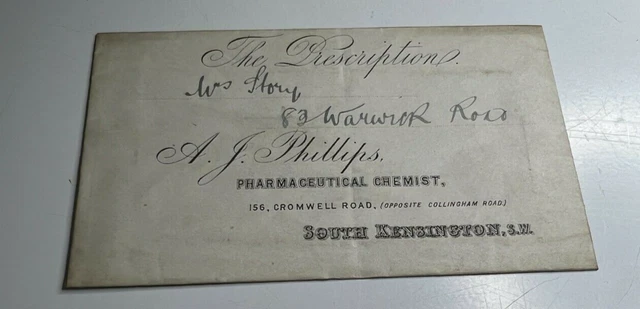 The Prescription.
Mrs Story
83 Warwick Road
A. J. Phillips,
PHARMACEUTICAL CHEMIST,
156, CROMWELL ROAD, (OPPOSITE COLLINGHAM ROAD.)
SOUTH KENSINGTON, S.W.